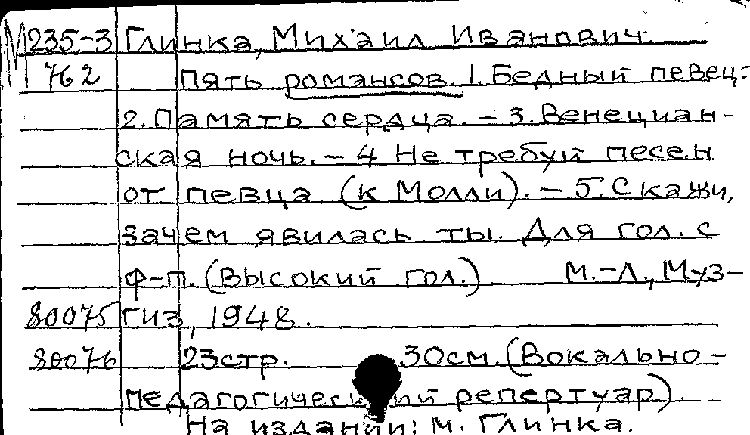 М 235-3 Глинка, Михаил Иванович.
762 Пять романсов. 1. Бедный певец.-
2. Память сердца. - 3. Венециан-
ская ночь. - 4. Не требуй песен
от певца (к Молли). - 5. Скажи,
зачем явилась ты. Для гол. с
ф-п. (Высокий гол.) М.-Л., Муз-
80075 гиз, 1948.
80076 23 стр. 30 см. (Вокально-
педагогический репертуар).
На издании: М. Глинка.